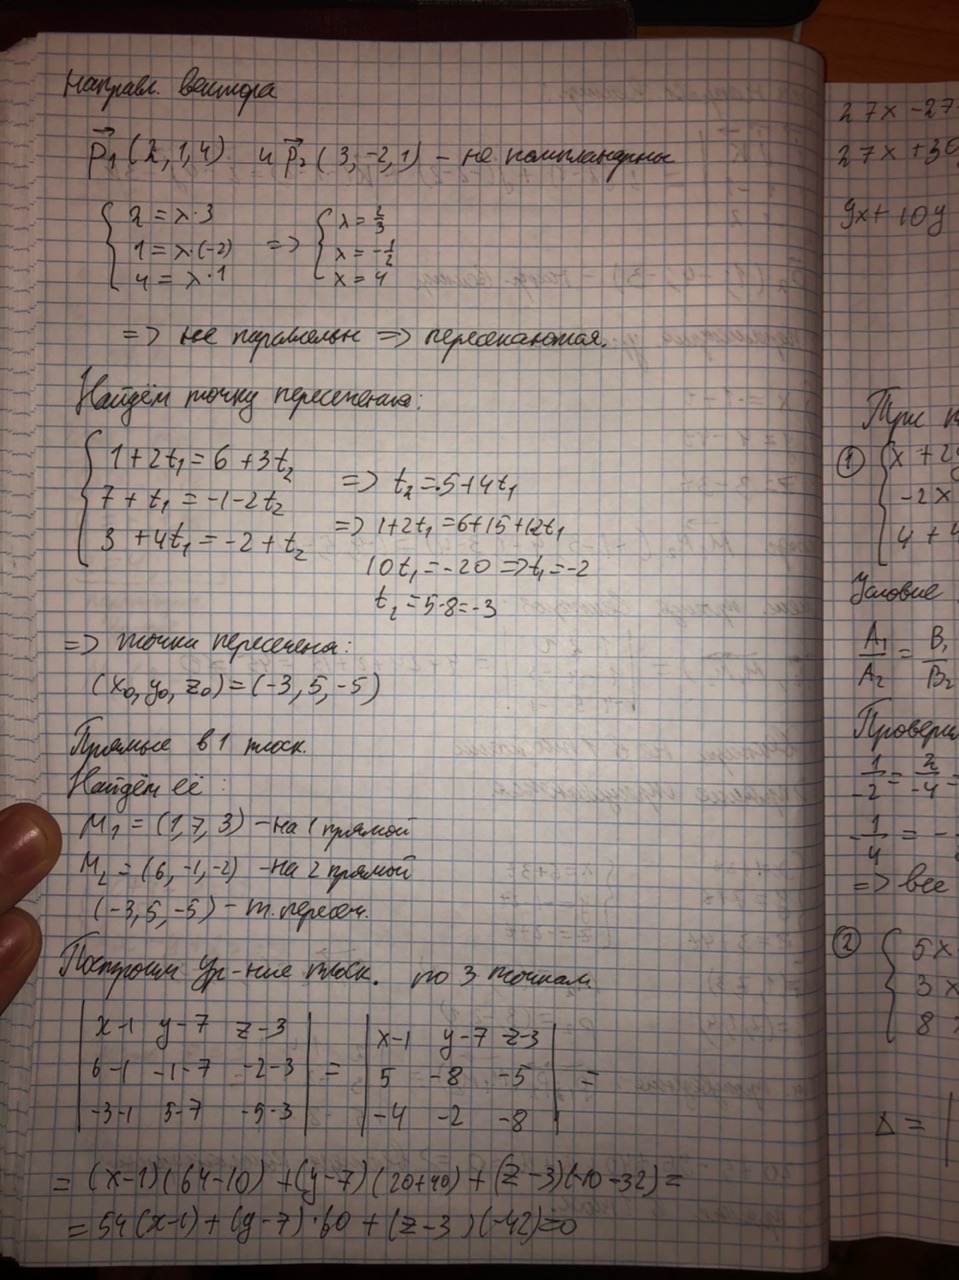 Направл. вектора
p₁ (2,1,4) и p₂ (3,-2,1) – не компланарны
{ 2 = λ·3
1 = λ·(-2)
4 = λ·1
=> { λ = 2/3
λ = -1/2
x = 4
=> не паралельн => пересекаются.
Найдём точку пересечения:
{ 1+2t₁=6+3t₂
7+t₁=-1-2t₂
3+4t₁=-2+t₂
=> t₂=5+4t₁
=> 1+2t₁=6+15+12t₁
10t₁=-20 => t₁=-2
t₂=5-8=-3
=> точки пересечения:
(x₀, y₀, z₀)=(-3, 5, -5)
Прямые в 1 плоск.
Найдём её:
M₁ = (1,7,3) – на 1 прямой
M₂ = (6,-1,-2) – на 2 прямой
(-3,5,-5) – т. пересеч.
Построим ур-ние плоск. по 3 точкам
| x-1 y-7 z-3 |
| 6-1 -1-7 -2-3 | =
| -3-1 5-7 -5-3 |
| x-1 y-7 z-3 |
| 5 -8 -5 | =
| -4 -2 -8 |
= (x-1)(64-10) + (y-7)(20+40) + (z-3)(-10-32) =
= 54(x-1) + (y-7)·60 + (z-3)(-42)=0
27x-27
27x+30
9x+10y
При
① { x+2y
-2x
4+4
Условие
A₁/A₂ = B₁/B₂
Проверим
1/-2 = 2/-4 =
-1/4 = -
=> все
② { 5x
3x
8
Δ = |